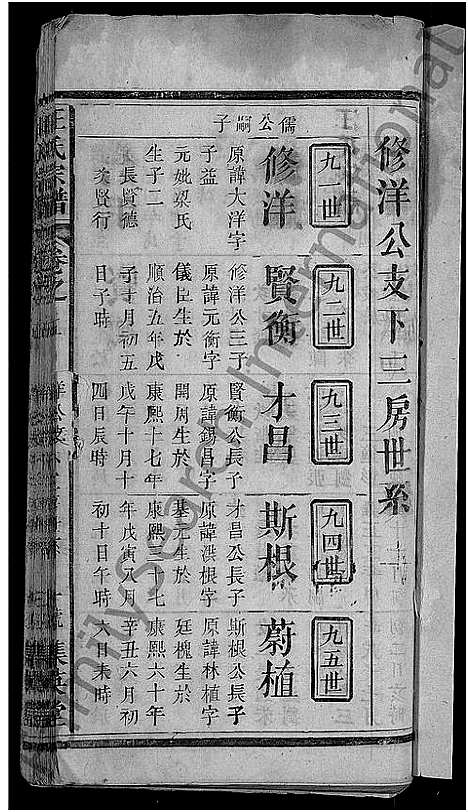 修洋公支下三房世系
九一世
九二世
九三世
九四世
九五世
儒公嗣子
修洋
原諱大洋字
子益
元妣梁氏
生子二
長賢德
次賢行
賢衡
修洋公三子
原諱元衡字
儀臣生於
順治五年戊
子十月初五
日子時
才昌
賢衡公長子
原諱錫昌字
開周生於
康熙十七年
戊午十月十
四日辰時
斯根
才昌公長子
原諱洪根字
基元生於
康熙三十七
年戊寅八月
初十日午時
蔚植
斯根公長子
原諱林植字
廷槐生於
康熙六十年
辛丑六月初
六日未時
氏宗譜
集英堂